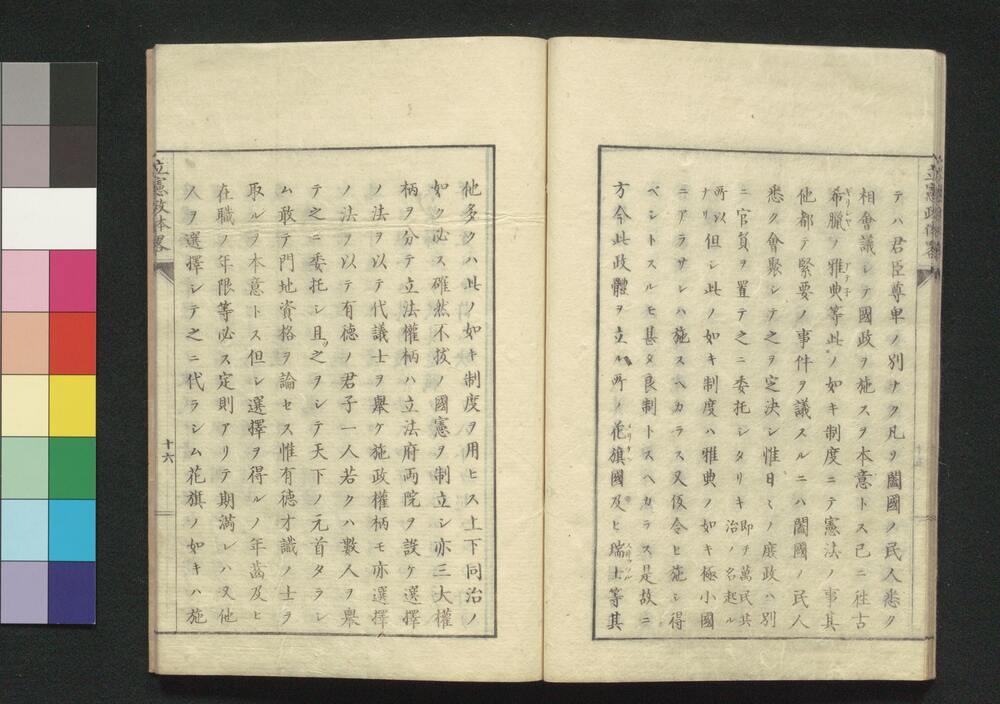 テハ君臣尊卑ノ別ナク凡ソ闔國ノ民人悉ク
相會議シテ國政ヲ施スヲ本意トス已ニ往古
希臘ノ雅典等此ノ如キ制度ニテ憲法ノ事其
ギリシヤ
アテネ
他都テ緊要ノ事件ヲ議スルニハ闔國ノ民人
悉ク會聚シテ之ヲ定決シ惟日々ノ庶政ハ別
ニ官員ヲ置テ之ニ委托シタリキ
即チ萬民共
治ノ名起ル
所以
ナリ
但シ此ノ如キ制度ハ雅典ノ如キ極小國
ニアラサレハ施スヘカラス又仮令ヒ施シ得
ベシトスルモ甚タ良制トスヘカラス是故ニ
方今此政體ヲ立ル所ノ花旗國及ヒ瑞士等其
他多クハ此ノ如キ制度ヲ用ヒス上下同治ノ
如ク必ス確然不拔ノ國憲ヲ制立シ亦三大權
柄ヲ分テ立法權柄ハ立法府両院ヲ設ケ選擇
ノ法ヲ以テ代議士ヲ擧ケ施政權柄モ亦選擇
ノ法ヲ以テ有徳ノ君子一人若クハ數人ヲ擧
テ之ニ委托シ且之ヲシテ天下ノ元首タラシ
ム敢テ門地資格ヲ論セス惟有徳才識ノ士ヲ
取ルヲ本意トス但シ選擇ヲ得ルノ年齒及ヒ
在職ノ年限等必ス定則アリテ期滿レハ又他
人ヲ選擇シテ之ニ代ラシム花旗ノ如キハ施
立憲政体略
十六